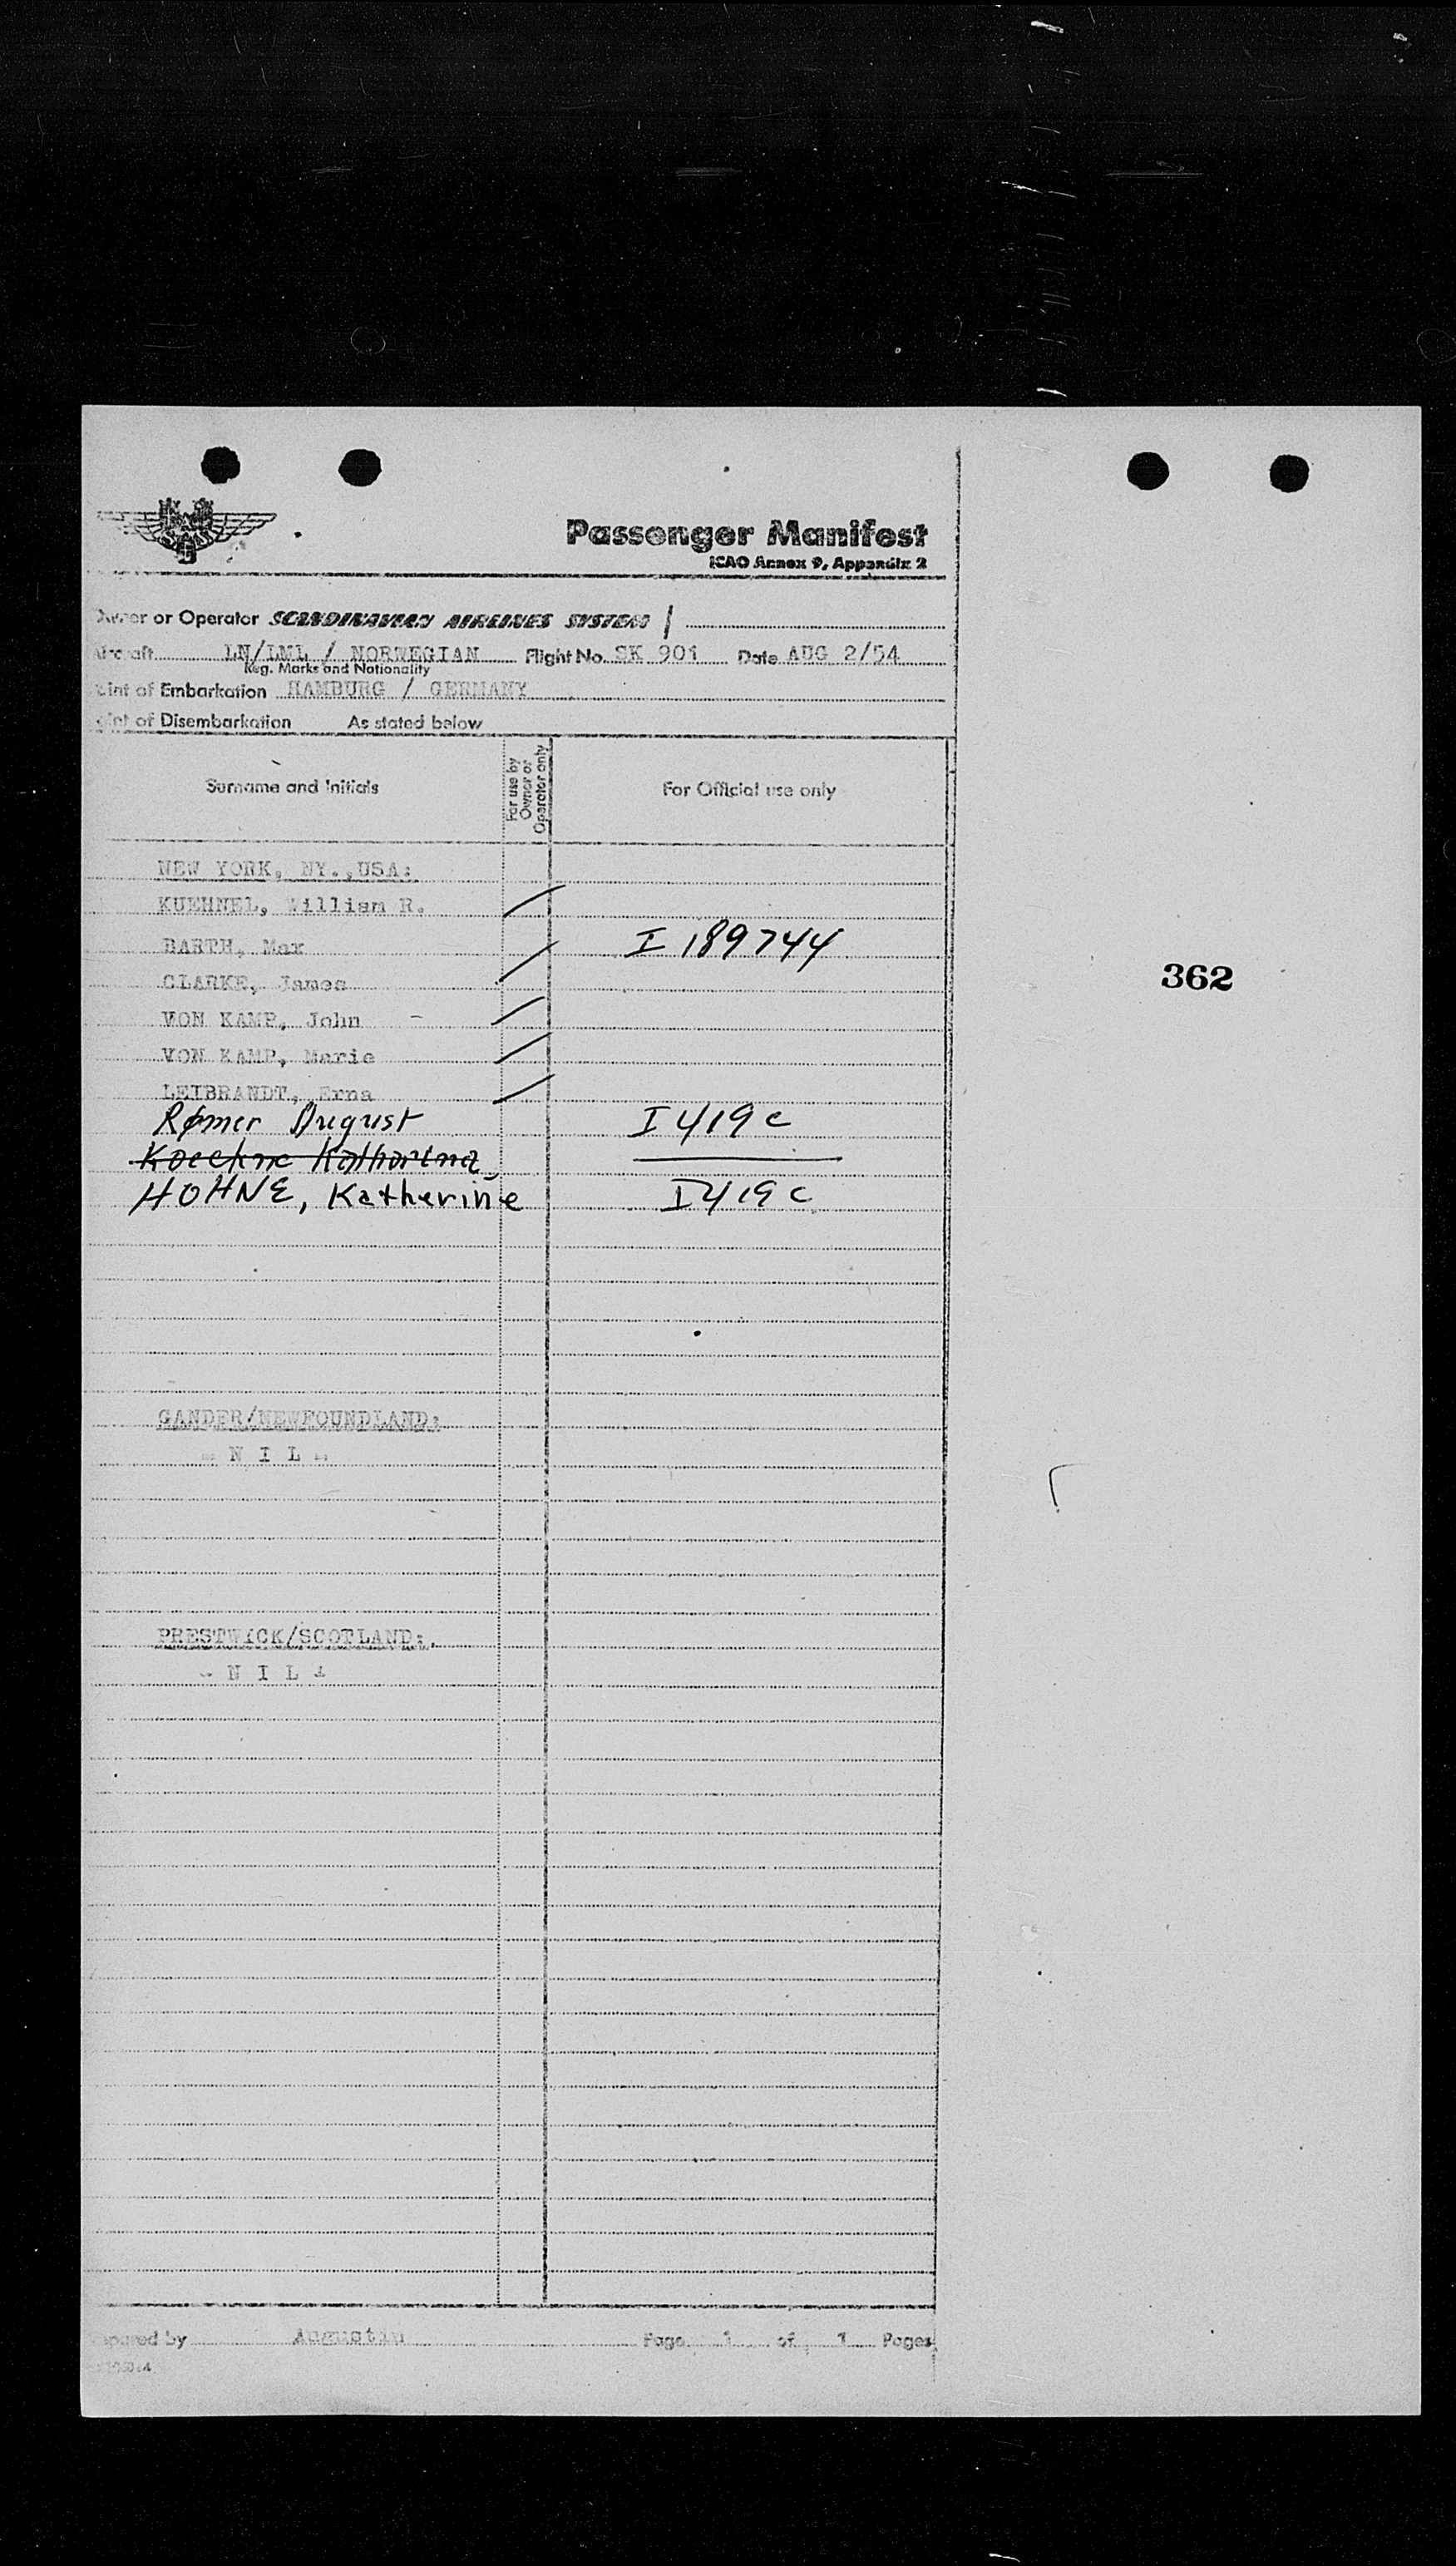 Passenger Manifest
ICAO Annex 9, Appendix 2
Owner or Operator SCANDINAVIAN AIRLINES SYSTEM /
Aircraft LN/LML / NORWEGIAN Flight No. SK 901 Date AUG 2/54
Reg. Marks and Nationality
Point of Embarkation HAMBURG / GERMANY
Point of Disembarkation As stated below
Surname and Initials
For use by Owner or Operator only
For Official use only
NEW YORK, NY.,USA:
KUEHNEL, William R.
BARTH, Max I 189744
CLARKE, James
362
VON KAMP, John -
VON KAMP, Marie
LEIBRANDT, Erna
Rømer August I 419 c
Koeckne Katharina
HOHNE, Katherine I 419 c
GANDER/NEWFOUNDLAND:
- N I L -
PRESTWICK/SCOTLAND:
- N I L -
Prepared by Augustin Page 1 of 1 Pages